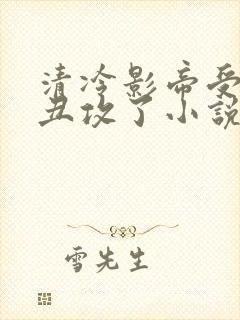 清冷影帝受
丑攻了小說
雪先生